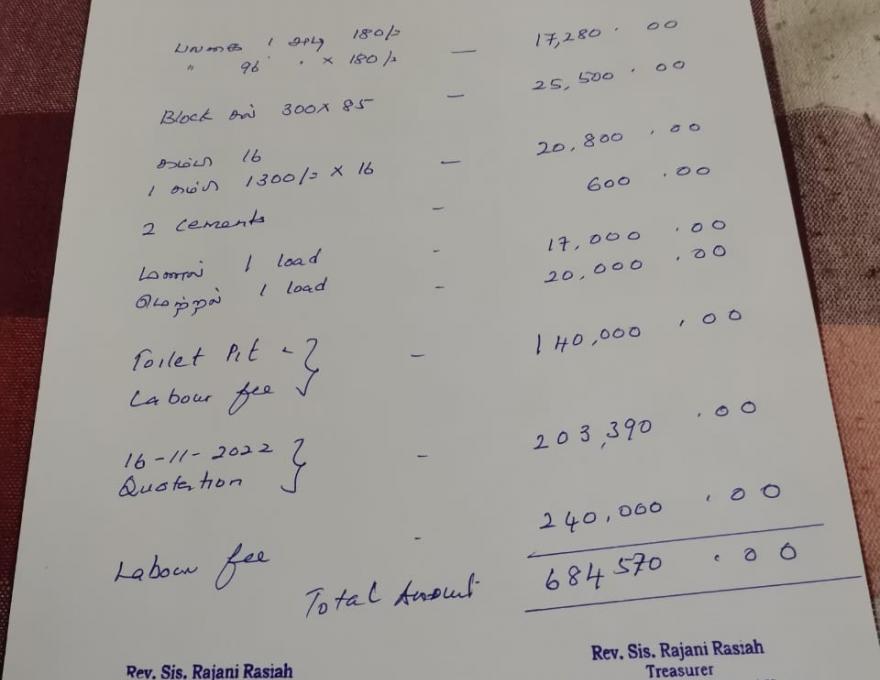 பலகை 1 அடி 180/=
" 96 " × 180/= — 17,280.00
Block கல் 300 × 85 — 25,500.00
கம்பி 16
1 கம்பி 1300/= × 16 — 20,800.00
2 cements - 600.00
மணல் 1 load - 17,000.00
மெற்றல் 1 load - 20,000.00
Toilet Pit - }
Labour fee - 140,000.00
16-11-2022 }
Quotation - 203,390.00
Labour fee - 240,000.00
Total Amount 684570.00
Rev. Sis. Rajani Rasiah
Rev. Sis. Rajani Rasiah
Treasurer